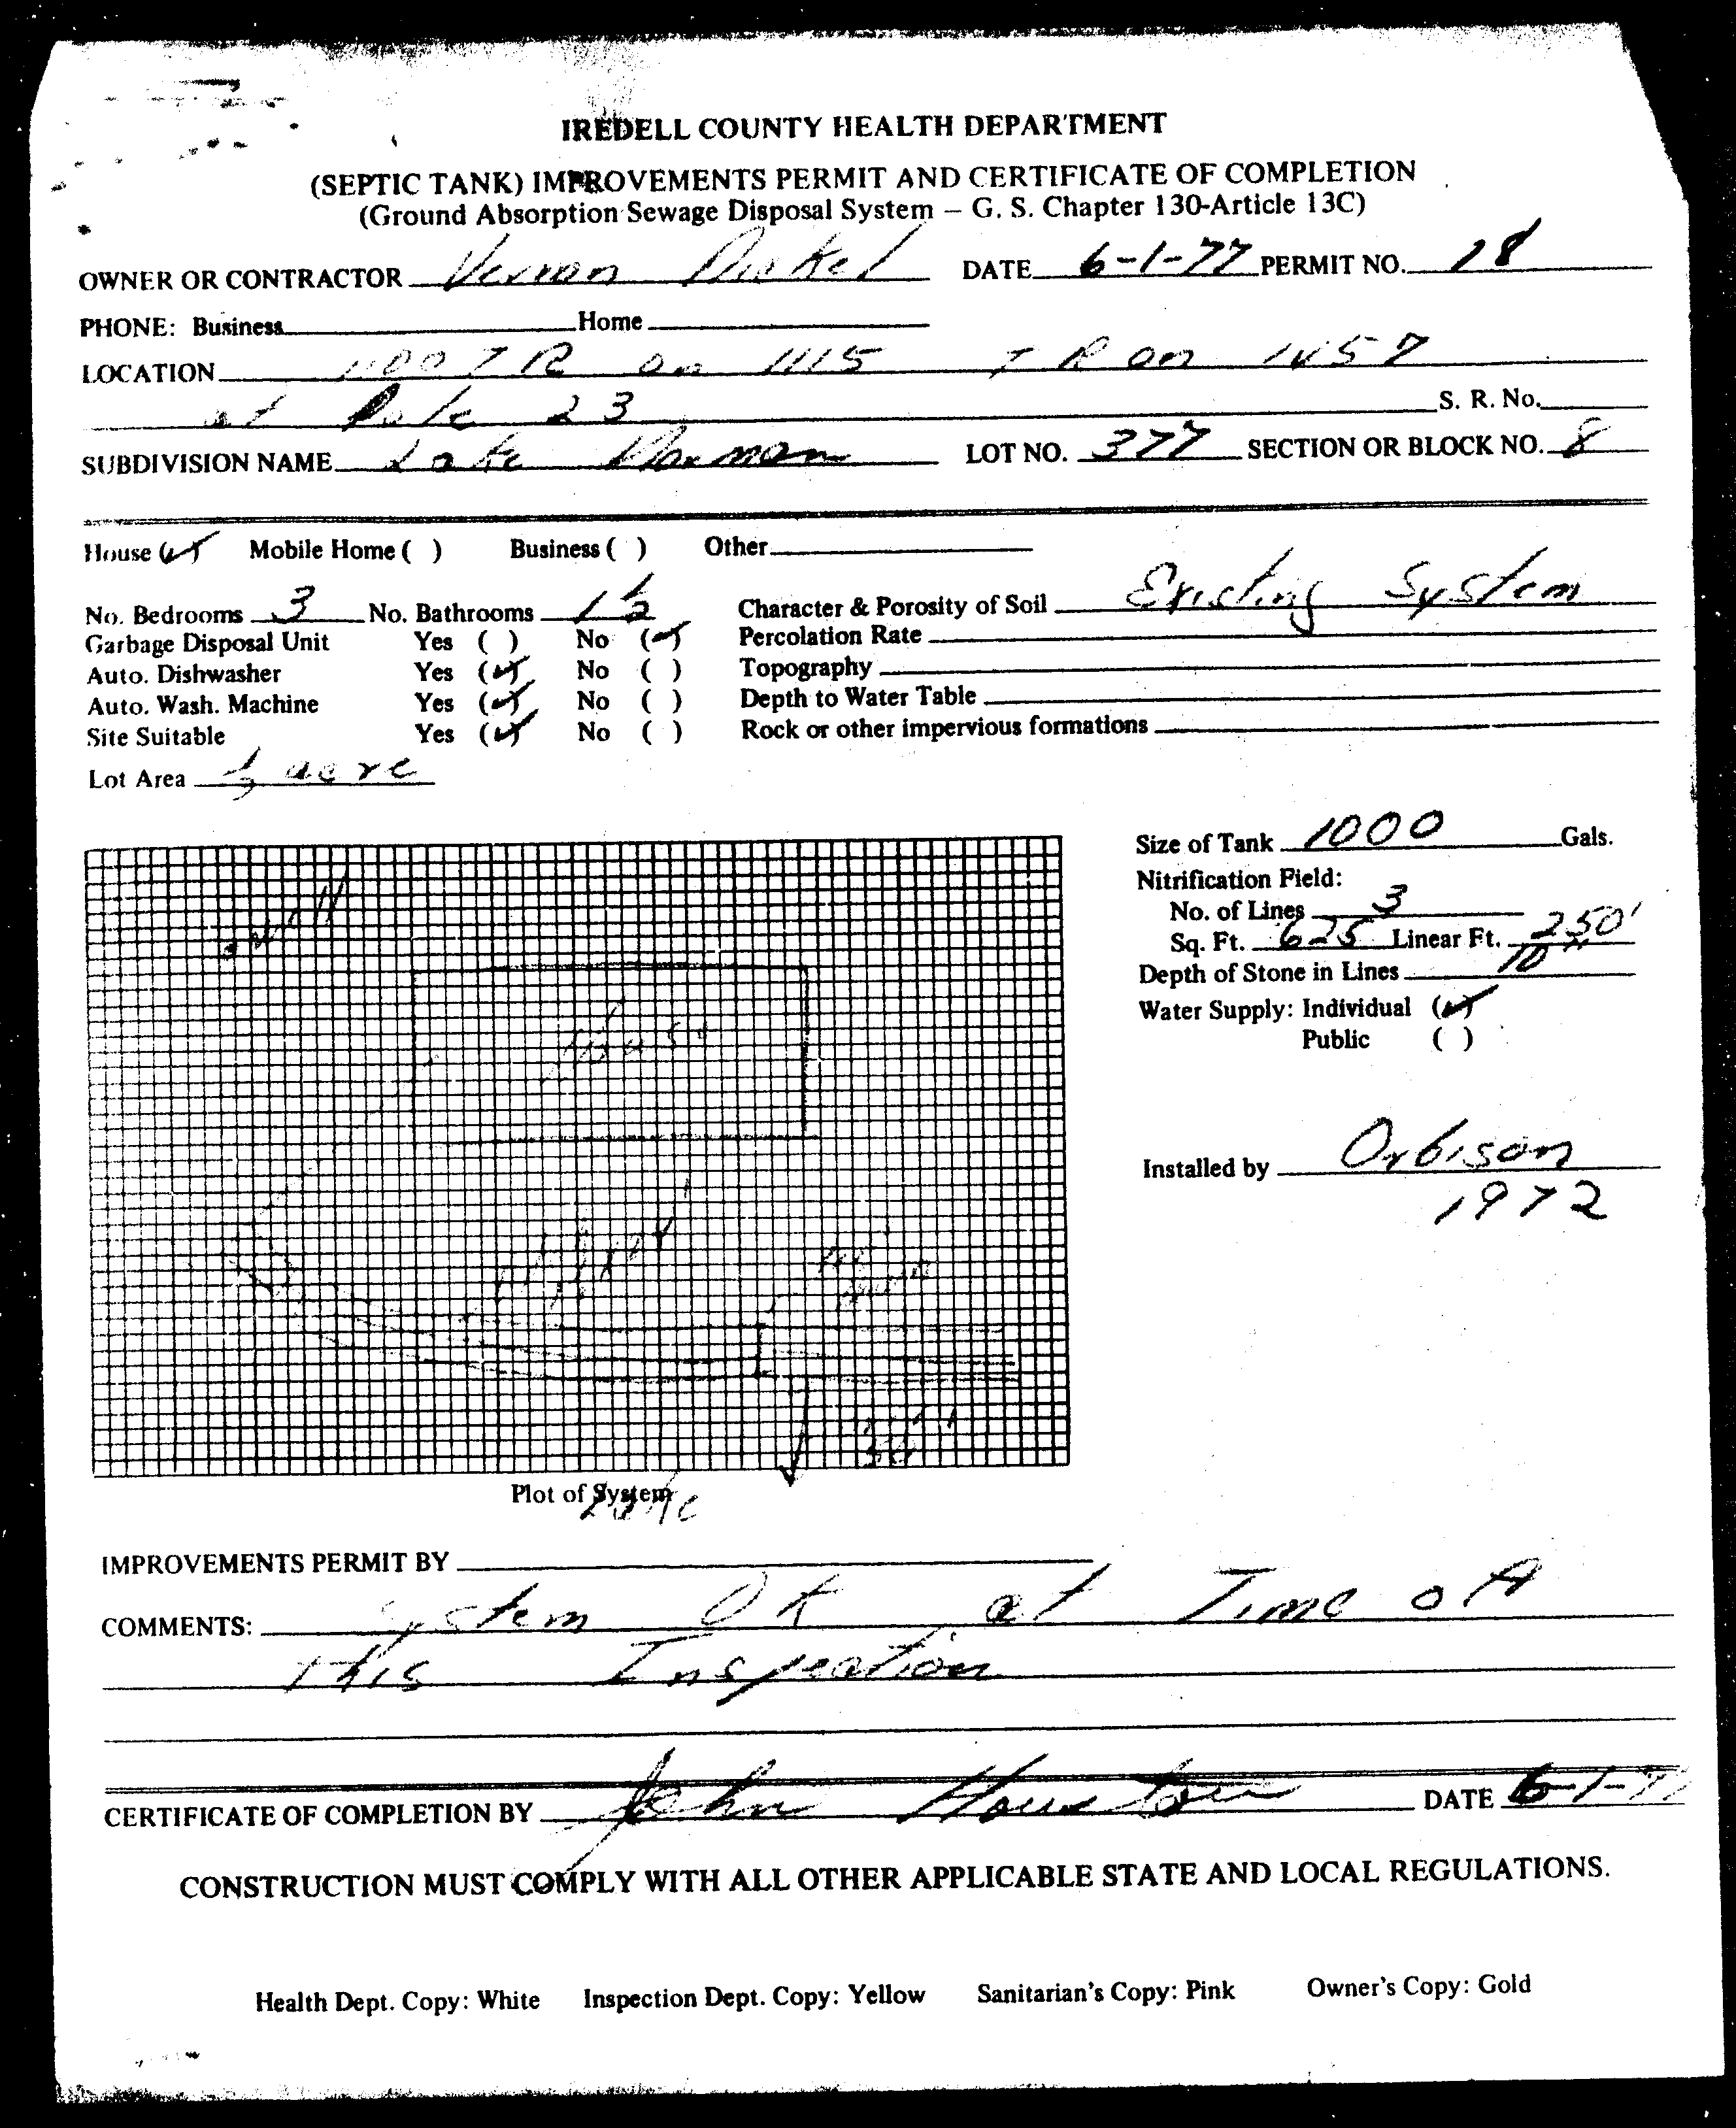 IREDELL COUNTY HEALTH DEPARTMENT
(SEPTIC TANK) IMPROVEMENTS PERMIT AND CERTIFICATE OF COMPLETION
(Ground Absorption Sewage Disposal System – G. S. Chapter 130-Article 13C)
OWNER OR CONTRACTOR Vernon DATE 6-1-77 PERMIT NO. 28
PHONE: Business Home
LOCATION 1100 TR on 1115 TR on 1457
at Pole 23 S. R. No.
SUBDIVISION NAME Lake Norman LOT NO. 377 SECTION OR BLOCK NO. 8
House (✓) Mobile Home ( ) Business ( ) Other
No. Bedrooms 3 No. Bathrooms 1½ Character & Porosity of Soil Existing System
Garbage Disposal Unit Yes ( ) No (✓) Percolation Rate
Auto. Dishwasher Yes (✓) No ( ) Topography
Auto. Wash. Machine Yes (✓) No ( ) Depth to Water Table
Site Suitable Yes (✓) No ( ) Rock or other impervious formations
Lot Area acre
Size of Tank 1000 Gals.
Nitrification Field:
No. of Lines 3
Sq. Ft. 625 Linear Ft. 250'
Depth of Stone in Lines 10"
Water Supply: Individual (✓)
Public ( )
well
House
Installed by Orbison
1972
Plot of System
Lake
IMPROVEMENTS PERMIT BY
COMMENTS: System OK at Time of
This Inspection
CERTIFICATE OF COMPLETION BY John Houston DATE 6-1-77
CONSTRUCTION MUST COMPLY WITH ALL OTHER APPLICABLE STATE AND LOCAL REGULATIONS.
Health Dept. Copy: White Inspection Dept. Copy: Yellow Sanitarian's Copy: Pink Owner's Copy: Gold